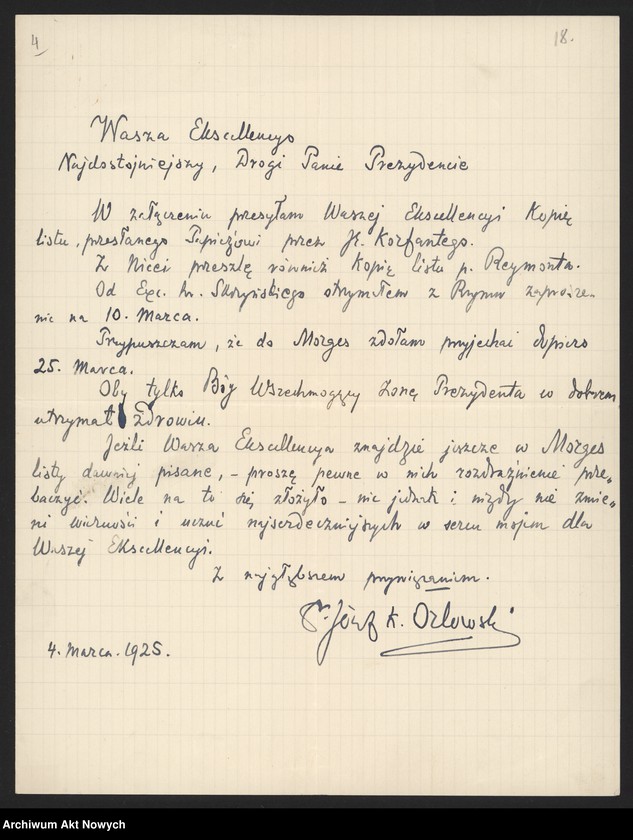 4
18.
Wasza Ekscellencyo
Najdostojniejszy, Drogi Panie Prezydencie
W załączeniu przesyłam Waszej Ekscellencyi Kopię
listu, przesłanego przez Korfantego.
Z Nicei prześlę również Kopię listu p. Reymonta.
Od Exc. hr. Skrzyńskiego otrzymałem z Rzymu zaprosze-
nie na 10. Marca.
Przypuszczam, że do Morges zdołam przyjechać dopiero
25. Marca.
Oby tylko Bóg Wszechmogący Żonę Prezydenta w dobrem
utrzymał zdrowiu.
Jeżli Wasza Ekscellencya znajdzie jeszcze w Morges
listy dawniej pisane, - proszę pewne w nich rozdrażnienie prze-
baczyć. Wiele na to się złożyło - nic jednak i nigdy nie zmie-
ni wierności i uczuć najserdeczniejszych w sercu mojem dla
Waszej Ekscellencyi.
Z najgłębszem przywiązaniem.
Józef K. Orłowski
4. Marca. 1925.
Archiwum Akt Nowych